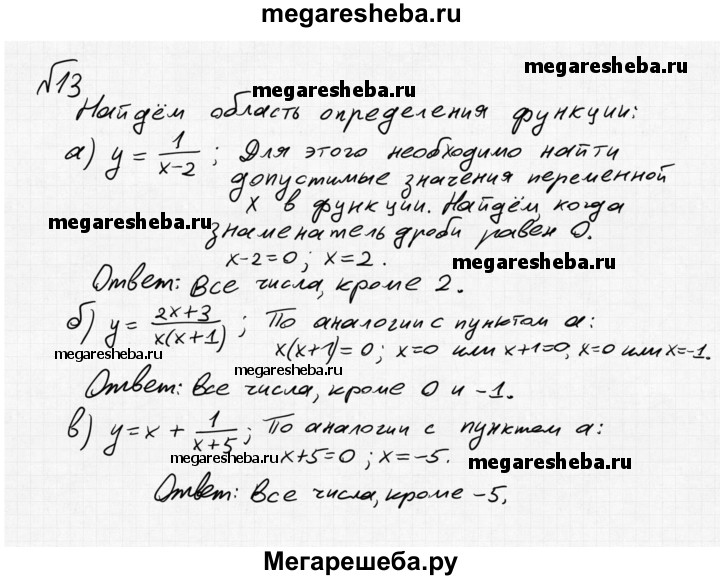 megaresheba.ru
√13
megaresheba.ru
megaresheba.ru
Найдём область определения функции:
а) y = 1/(x-2) ; Для этого необходимо найти
допустимые значения переменной
x в функции. Найдём, когда
megaresheba.ru
знаменатель дроби равен 0.
x-2=0; x=2.
megaresheba.ru
Ответ: Все числа, кроме 2.
б) y = (2x+3)/(x(x+1)) ; По аналогии с пунктом а:
megaresheba.ru
x(x+1)=0; x=0 или x+1=0, x=0 или x=-1.
megaresheba.ru
Ответ: Все числа, кроме 0 и -1.
megaresheba.ru
в) y=x + 1/(x+5) ; По аналогии с пунктом а:
megaresheba.ru
x+5=0; x=-5.
megaresheba.ru
Ответ: Все числа, кроме -5,
Мегарешеба.ру